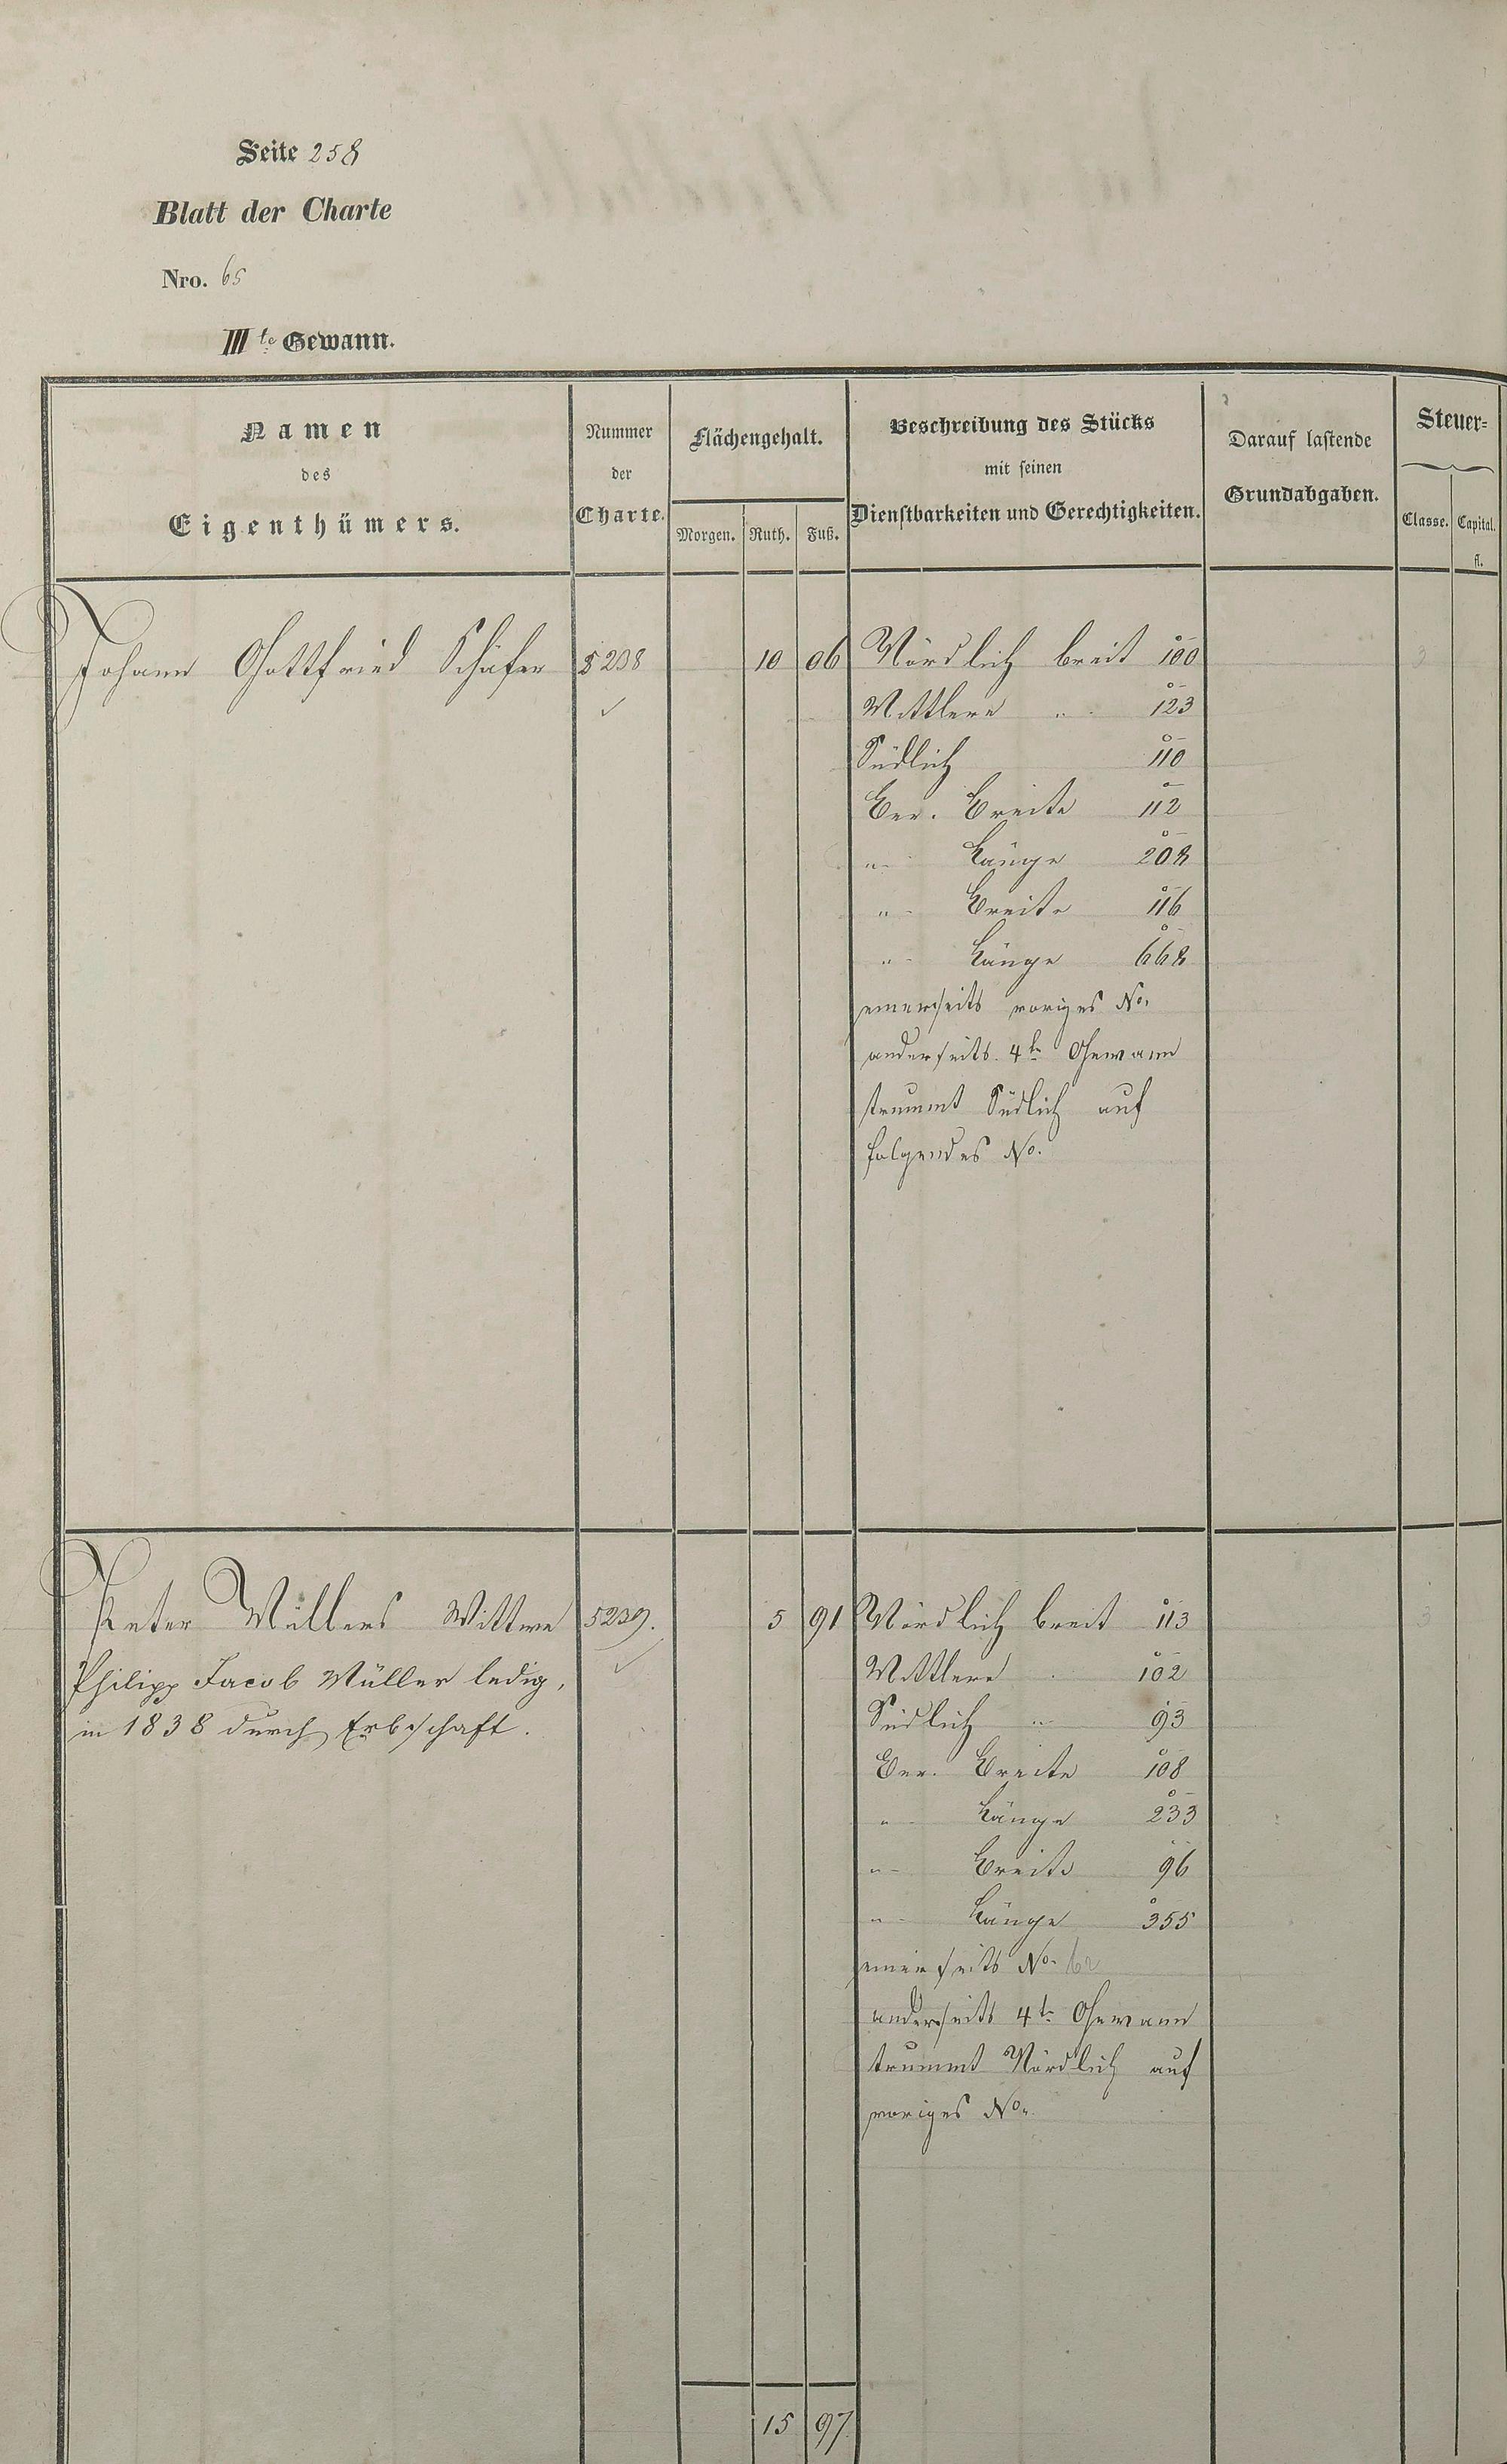 Seite 258
Blatt der Charte
Nro. 65
III te Gewann.
Namen
des
Eigenthümers.
Nummer
der
Charte.
Flächengehalt.
Morgen. Ruth. Fuß.
Beschreibung des Stücks
mit seinen
Dienstbarkeiten und Gerechtigkeiten.
Darauf lastende
Grundabgaben.
Steuer=
Classe. Capital.
fl.
Johann Gottfried Schäfer 5238 10 06 Nördlich breit 100 3
Mittlere " 123
Südlich 110
Ber. Breite 112
" Länge 208
" Breite 116
" Länge 668
einerseits voriges No.
anderseits 4te Gewann
trummt Südlich auf
folgendes No.
Peter Müllers Wittwe 5239. 5 91 Nördlich breit 113 3
Philipp Jacob Müller ledig, Mittlere 102
in 1838 durch Erbschaft. Südlich " 93
Ber. Breite 108
" Länge 233
" Breite 96
" Länge 355
einerseits No. 62
anderseits 4te Gewann
trummt Nördlich auf
voriges No.
15 97